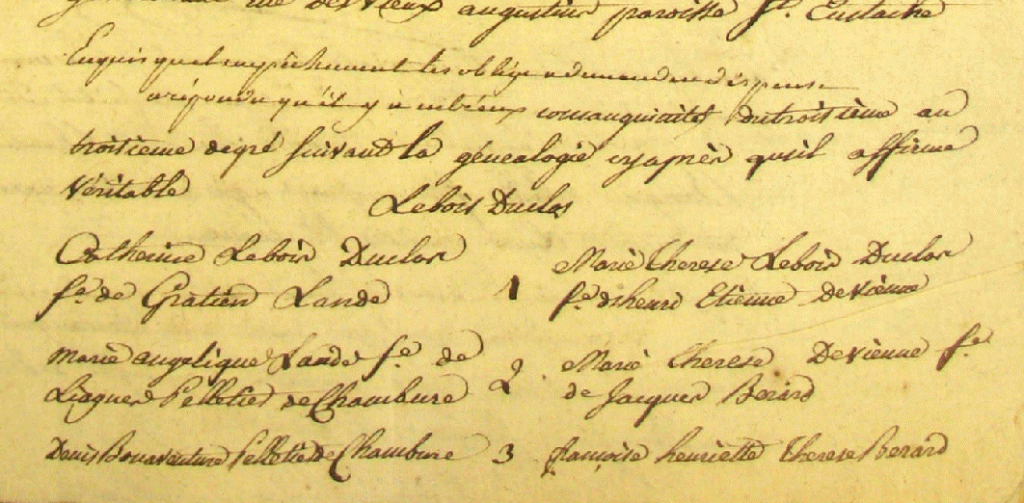 rue des vieux augustin paroisse St. Eustache
Enquis quel empêchement les oblige a demander dispense
a répondu qu'il y a entr'eux consanguinité du troisième au
troisieme degré suivant la généalogie cy après qu'il affirme
véritable
Lebois Duclos
Catherine Lebois Duclos
fe. de Gratien Lande
1
Marie Therese Lebois Duclos
fe. de henri Etienne Devienne
Marie angelique Lande fe. de
Jaques Pelletier de Chambure
2
Marie Therese Devienne fe.
de Jacques Berard
Denis Bonaventure Pelletier de Chambure
3
françoise henriette Therese Berard